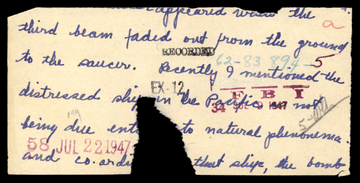 appeared when the
a
third beam faded out from the ground
to the saucer.
RECORDED
62-83894-5
Recently I mentioned the
EX-12
F B I
distressed ship in the Pacific as not
34 JUL 9 1947
being due to natural phenomena.
58 JUL 22 1947
and co-ordi that ship, the bomb